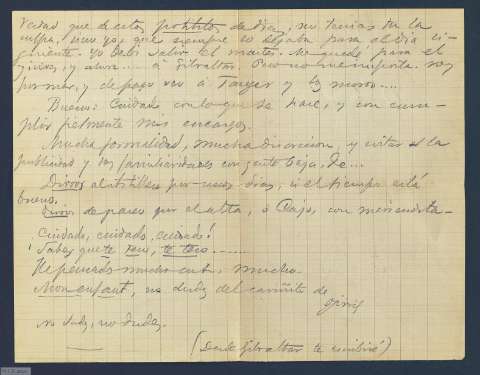 verdad que de estos pobtitos de días, no tenías tu la
culpa, sino yo, que siempre lo dejaba para el día si-
guiente. Yo debí salir el martes. Me quedé para el
jueves, y ahora.... á Gibraltar. Pero no le importa. voy
por mar, y de paso veo á Tanger y los moros....
Bueno: Cuidado con lo que se hace, y con cum-
plir fielmente mis encargos.
Mucha formalidad, mucha discreción, y evitar la
publicidad y las familiaridades con gente baja. Je...
Divos al por unos días, si el tiempo está
bueno.
de paseo por el alta, ó Bajo, con meriendita-
Cuidado, cuidado, cuidado!
¡Sabes que te veo, te veo......
He pensado mucho en ti. mucho.
Mon enfant, no dudes del cariño de
No dudes, no dudes.
(Desde Gibraltar te escribiré)